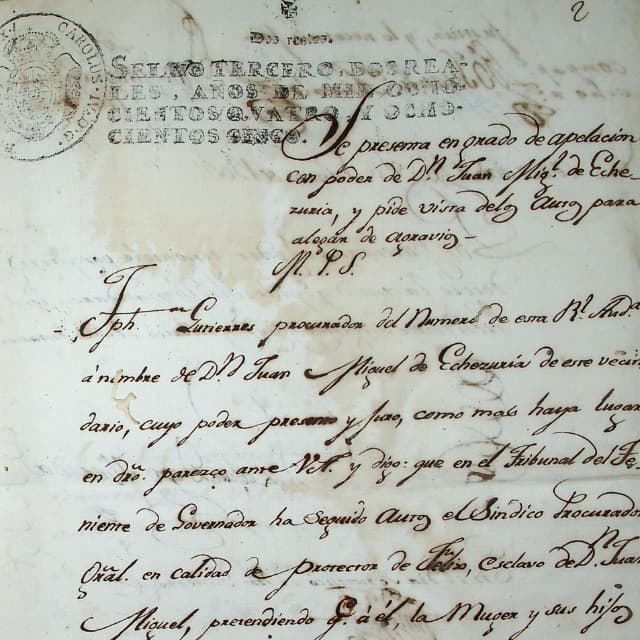 2
CAROLUS · IV · D · G ·
Dos reales.
SELLO TERCERO, DOS REA-
LES, AÑOS DE MIL OCHO-
CIENTOS QVATRO, Y OCHO-
CIENTOS CINCO.
Se presenta en grado de apelacion
con poder de Dn. Juan Migl. de Eche-
zuria, y pide vista delos Autos para
alegar de agravios –
M. P. S.
Jph. Gutierres procurador del Numero de esta Rl. Auda.
á nimbre de Dn. Juan Miguel de Echezuria de este vecin
dario, cuyo poder presento y juro, como mas haya lugar
en dro. parezco ante V.A. y digo: que en el Tribunal del Te
niente de Governador ha seguido Autos el Sindico Procurador
Gral. en calidad de protector de Felix, esclavo de Dn. Juan
Miguel, pretendiendo q. á él, la Muger y sus hijos